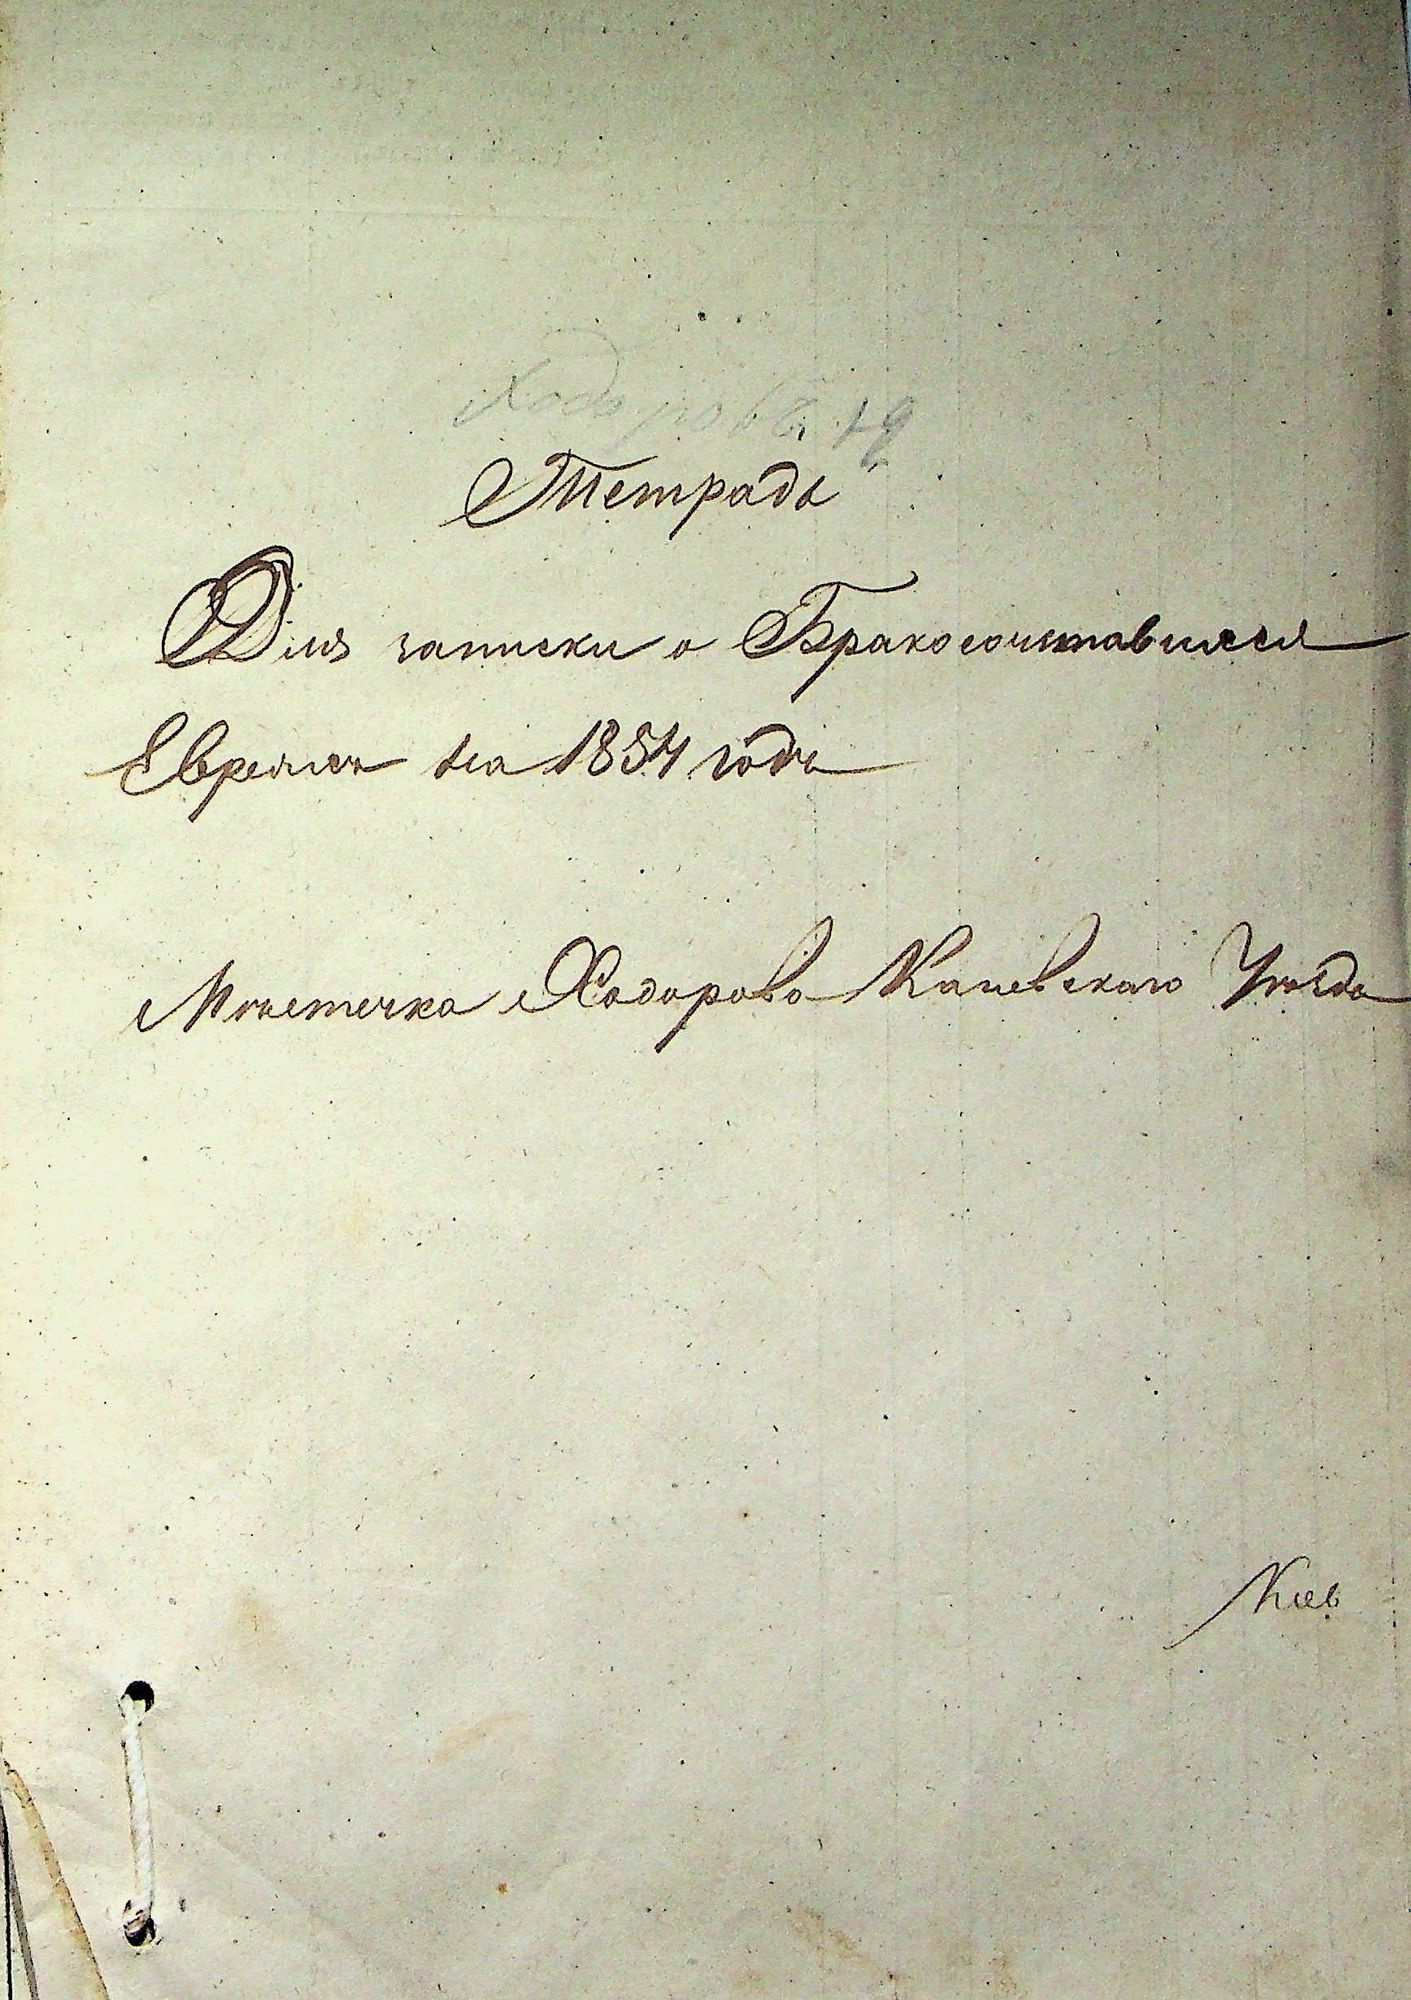 Ходоровъ
Тетрадь
Для записки о Бракосочетавшихся
Евреяхъ на 1854 годъ
Мѣстечка Ходорова Каневскаго Уѣзда
Киев